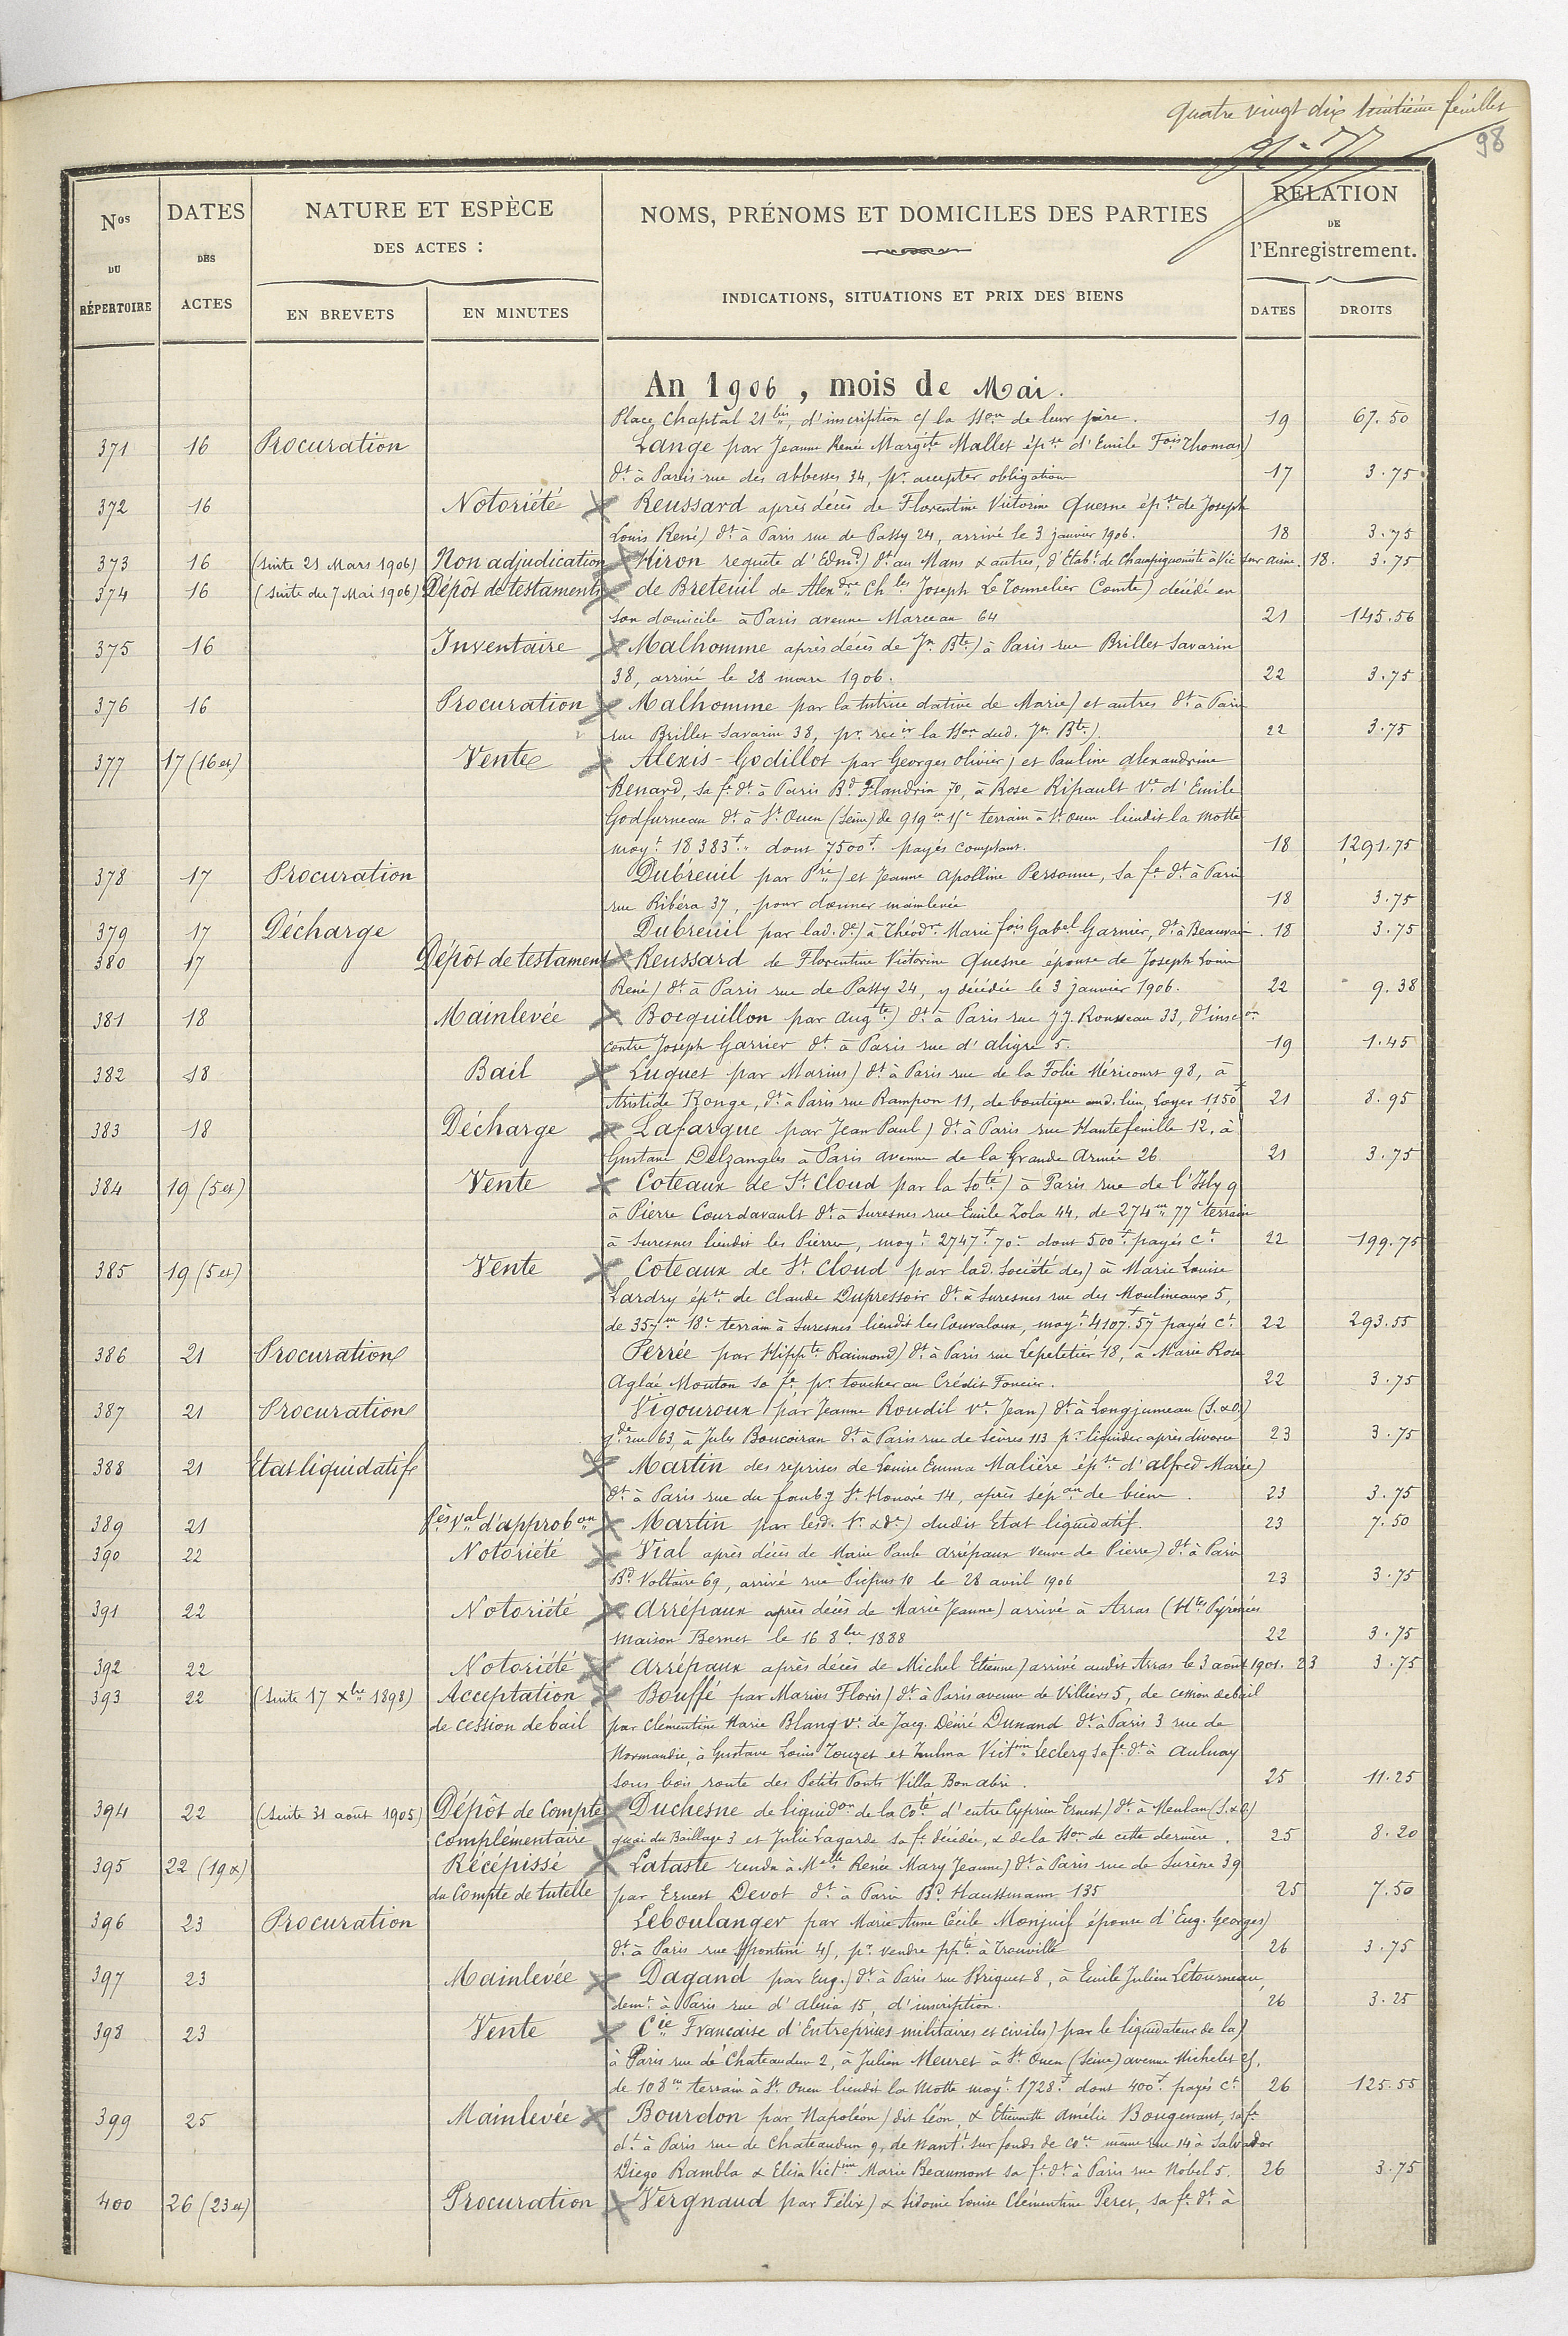 quatre vingt dix huitième feuillet
98
Nos DU RÉPERTOIRE
DATES DES ACTES
NATURE ET ESPÈCE DES ACTES :
EN BREVETS
EN MINUTES
NOMS, PRÉNOMS ET DOMICILES DES PARTIES
INDICATIONS, SITUATIONS ET PRIX DES BIENS
RELATION DE l'Enregistrement.
DATES
DROITS
An 1906, mois de Mai.
Place Chaptal 21 bis, d'inscription c/ la Sion de leur père. 19 67.50
371 16 Procuration Lange par Jeanne Renée Margite Mallet épse d'Emile Fois Thomas)
dt à Paris rue des abbesses 34, pr accepter obligation 17 3.75
372 16 Notoriété Reussard après décès de Florentine Victorine Quesne épse de Joseph
Louis René) dt à Paris rue de Passy 24, arrivé le 3 janvier 1906. 18 3.75
373 16 (suite 21 Mars 1906) Non adjudication Kiron requete d'Edmd) dt au Mans & autres, d'Etabt de Champignoniste à Vic sur aisne. 18. 3.75
374 16 (suite du 7 Mai 1906) Dépôt de testaments de Breteuil de Alexdre Chles Joseph Le Tonnelier Comte) décédé en
son domicile à Paris avenue Marceau 64 21 145.56
375 16 Inventaire Malhomme après décès de Jn Bte) à Paris rue Brillet Savarin
38, arrivé le 28 mars 1906. 22 3.75
376 16 Procuration Malhomme par la tutrice dative de Marie) et autres dt à Paris
rue Brillet Savarin 38, pr recir la Sion dud. Jn Bte). 22 3.75
377 17 (16 et) Vente Alexis-Godillot par Georges olivier) et Pauline alexandrine
Renard, sa fe dt à Paris Bd Flandrin 70, à Rose Ripault Ve d'Emile
Godfurneau dt à St Ouen (Seine) de 919m 15c terrain à St Ouen lieudit la Motte
moyt 18383f.. dont 7500f. payés comptant. 18 1291.75
378 17 Procuration Dubreuil par Pre) et Jeanne Apolline Personne, sa fe dt à Paris
rue Ribéra 37, pour donner mainlevée 18 3.75
379 17 Décharge Dubreuil par lad. de) à Théodre Marie fois Gabel Garnier, dt à Beauvais. 18 3.75
380 17 Dépôt de testament Reussard de Florentine Victorine Quesne épouse de Joseph Louis
René) dt à Paris rue de Passy 24, y décédée le 3 janvier 1906. 22 9.38
381 18 Mainlevée Bocquillon par Augte) dt à Paris rue J.J. Rousseau 33, d'inscon
contre Joseph Garrier dt à Paris rue d'aligre 5. 19 1.45
382 18 Bail Luquet par Marius) dt à Paris rue de la Folie Méricourt 98, à
Aristide Ronge, dt à Paris rue Rampon 11, de boutique aud. lieu, Loyer 1150f 21 8.95
383 18 Décharge Lafargue par Jean Paul) dt à Paris rue Hautefeuille 12, à
Gustave Delzangles à Paris avenue de la Grande Armée 26 21 3.75
384 19 (5 et) Vente Coteaux de St Cloud par la Soté) à Paris rue de l'Isly 9
à Pierre Courdavault dt à Suresnes rue Emile Zola 44, de 274m 77c terrain
à Suresnes lieudit les Pierres, moyt 2747f 70c dont 500f payés ct 22 199.75
385 19 (5 et) Vente Coteaux de St Cloud par lad. Société des) à Marie Louise
Lardry épse de Claude Dupressoir dt à Suresnes rue des Moulineaux 5,
de 357m 18c terrain à Suresnes lieudit les Couvaloux, moyt 4107f 57 payés ct 22 293.55
386 21 Procuration Perrée par Hippte Raimond) dt à Paris rue Lepeletier 18, à Marie Rose
Aglaé Mouton sa fe pr toucher au Crédit Foncier. 22 3.75
387 21 Procuration Vigouroux par Jeanne Roudil Ve Jean) dt à Longjumeau (S.&O.)
gde rue 63, à Jules Boucoiran dt à Paris rue de Sèvres 113 pr liquider après divorce 23 3.75
388 21 Etat liquidatif Martin des reprises de Louise Emma Malière épse d'alfred Marie)
dt à Paris rue du faubg St Honoré 14, après sépon de biens. 23 3.75
389 21 Pcès val d'approbon Martin par lesd. Sr & de) dudit Etat liquidatif. 23 7.50
390 22 Notoriété Vial après décès de Marie Paule Arrépaux veuve de Pierre) dt à Paris
Bd Voltaire 69, arrivé rue Picpus 10 le 28 avril 1906 23 3.75
391 22 Notoriété Arrépaux après décès de Marie Jeanne) arrivé à Arras (Htes Pyrénées
maison Bernet le 16 8bre 1888 22 3.75
392 22 Notoriété Arrépaux après décès de Michel Etienne) arrivé audit Arras le 3 août 1901. 23 3.75
393 22 (suite 17 Xbre 1898) Acceptation Bouffé par Marius Floris) dt à Paris avenue de Villiers 5, de cession de bail
de cession de bail par Clémentine Marie Blang Ve de Jacq. Désiré Dunand dt à Paris 3 rue de
Normandie, à Gustave Louis Touzet et Zulma Victine Leclerq sa fe dt à Aulnay
sous bois route des Petits Ponts Villa Bon abri. 25 11.25
394 22 (Suite 31 août 1905) Dépôt de Compte Duchesne de liquidon de la Coté d'entre Cyprien Ernest) dt à Meulan (S.&O.)
complémentaire quai du Baillage 3 et Julie Lagarde sa fe décédée, & de la Sion de cette dernière. 25 8.20
395 22 (19 x) Récépissé Lataste rendu à Melle Renée Mary Jeanne) dt à Paris rue de Surène 39
du Compte de tutelle par Ernest Devot dt à Paris Bd Haussmann 135 25 7.50
396 23 Procuration Leboulanger par Marie Anne Cécile Monjuif épouse d'Eug. Georges)
dt à Paris rue Spontini 45, pr vendre ppté à Trouville 26 3.75
397 23 Mainlevée Dagand par Eug.) dt à Paris rue Briquet 8, à Emile Julien Letourneau,
demt à Paris rue d'Alesia 15, d'inscription. 26 3.25
398 23 Vente Cie Française d'Entreprises militaires et civiles) par le liquidateur de la)
à Paris rue de Chateaudun 2, à Julien Meuret à St Ouen (Seine) avenue Michelet 25,
de 108m terrain à St Ouen lieudit la Motte moyt 1728f dont 400f payés ct 26 125.55
399 25 Mainlevée Bourdon par Napoléon) dit Léon, & Etiennette Amélie Bougenant, sa fe
dt à Paris rue de Chateaudun 9, de nantt sur fonds de coce même rue 14 à Salvador
Diego Rambla & Elisa Victine Marie Beaumont sa fe dt à Paris rue Nobel 5. 26 3.75
400 26 (23 et) Procuration Vergnaud par Félix) & Sidonie Louise Clémentine Peret, sa fe dt à